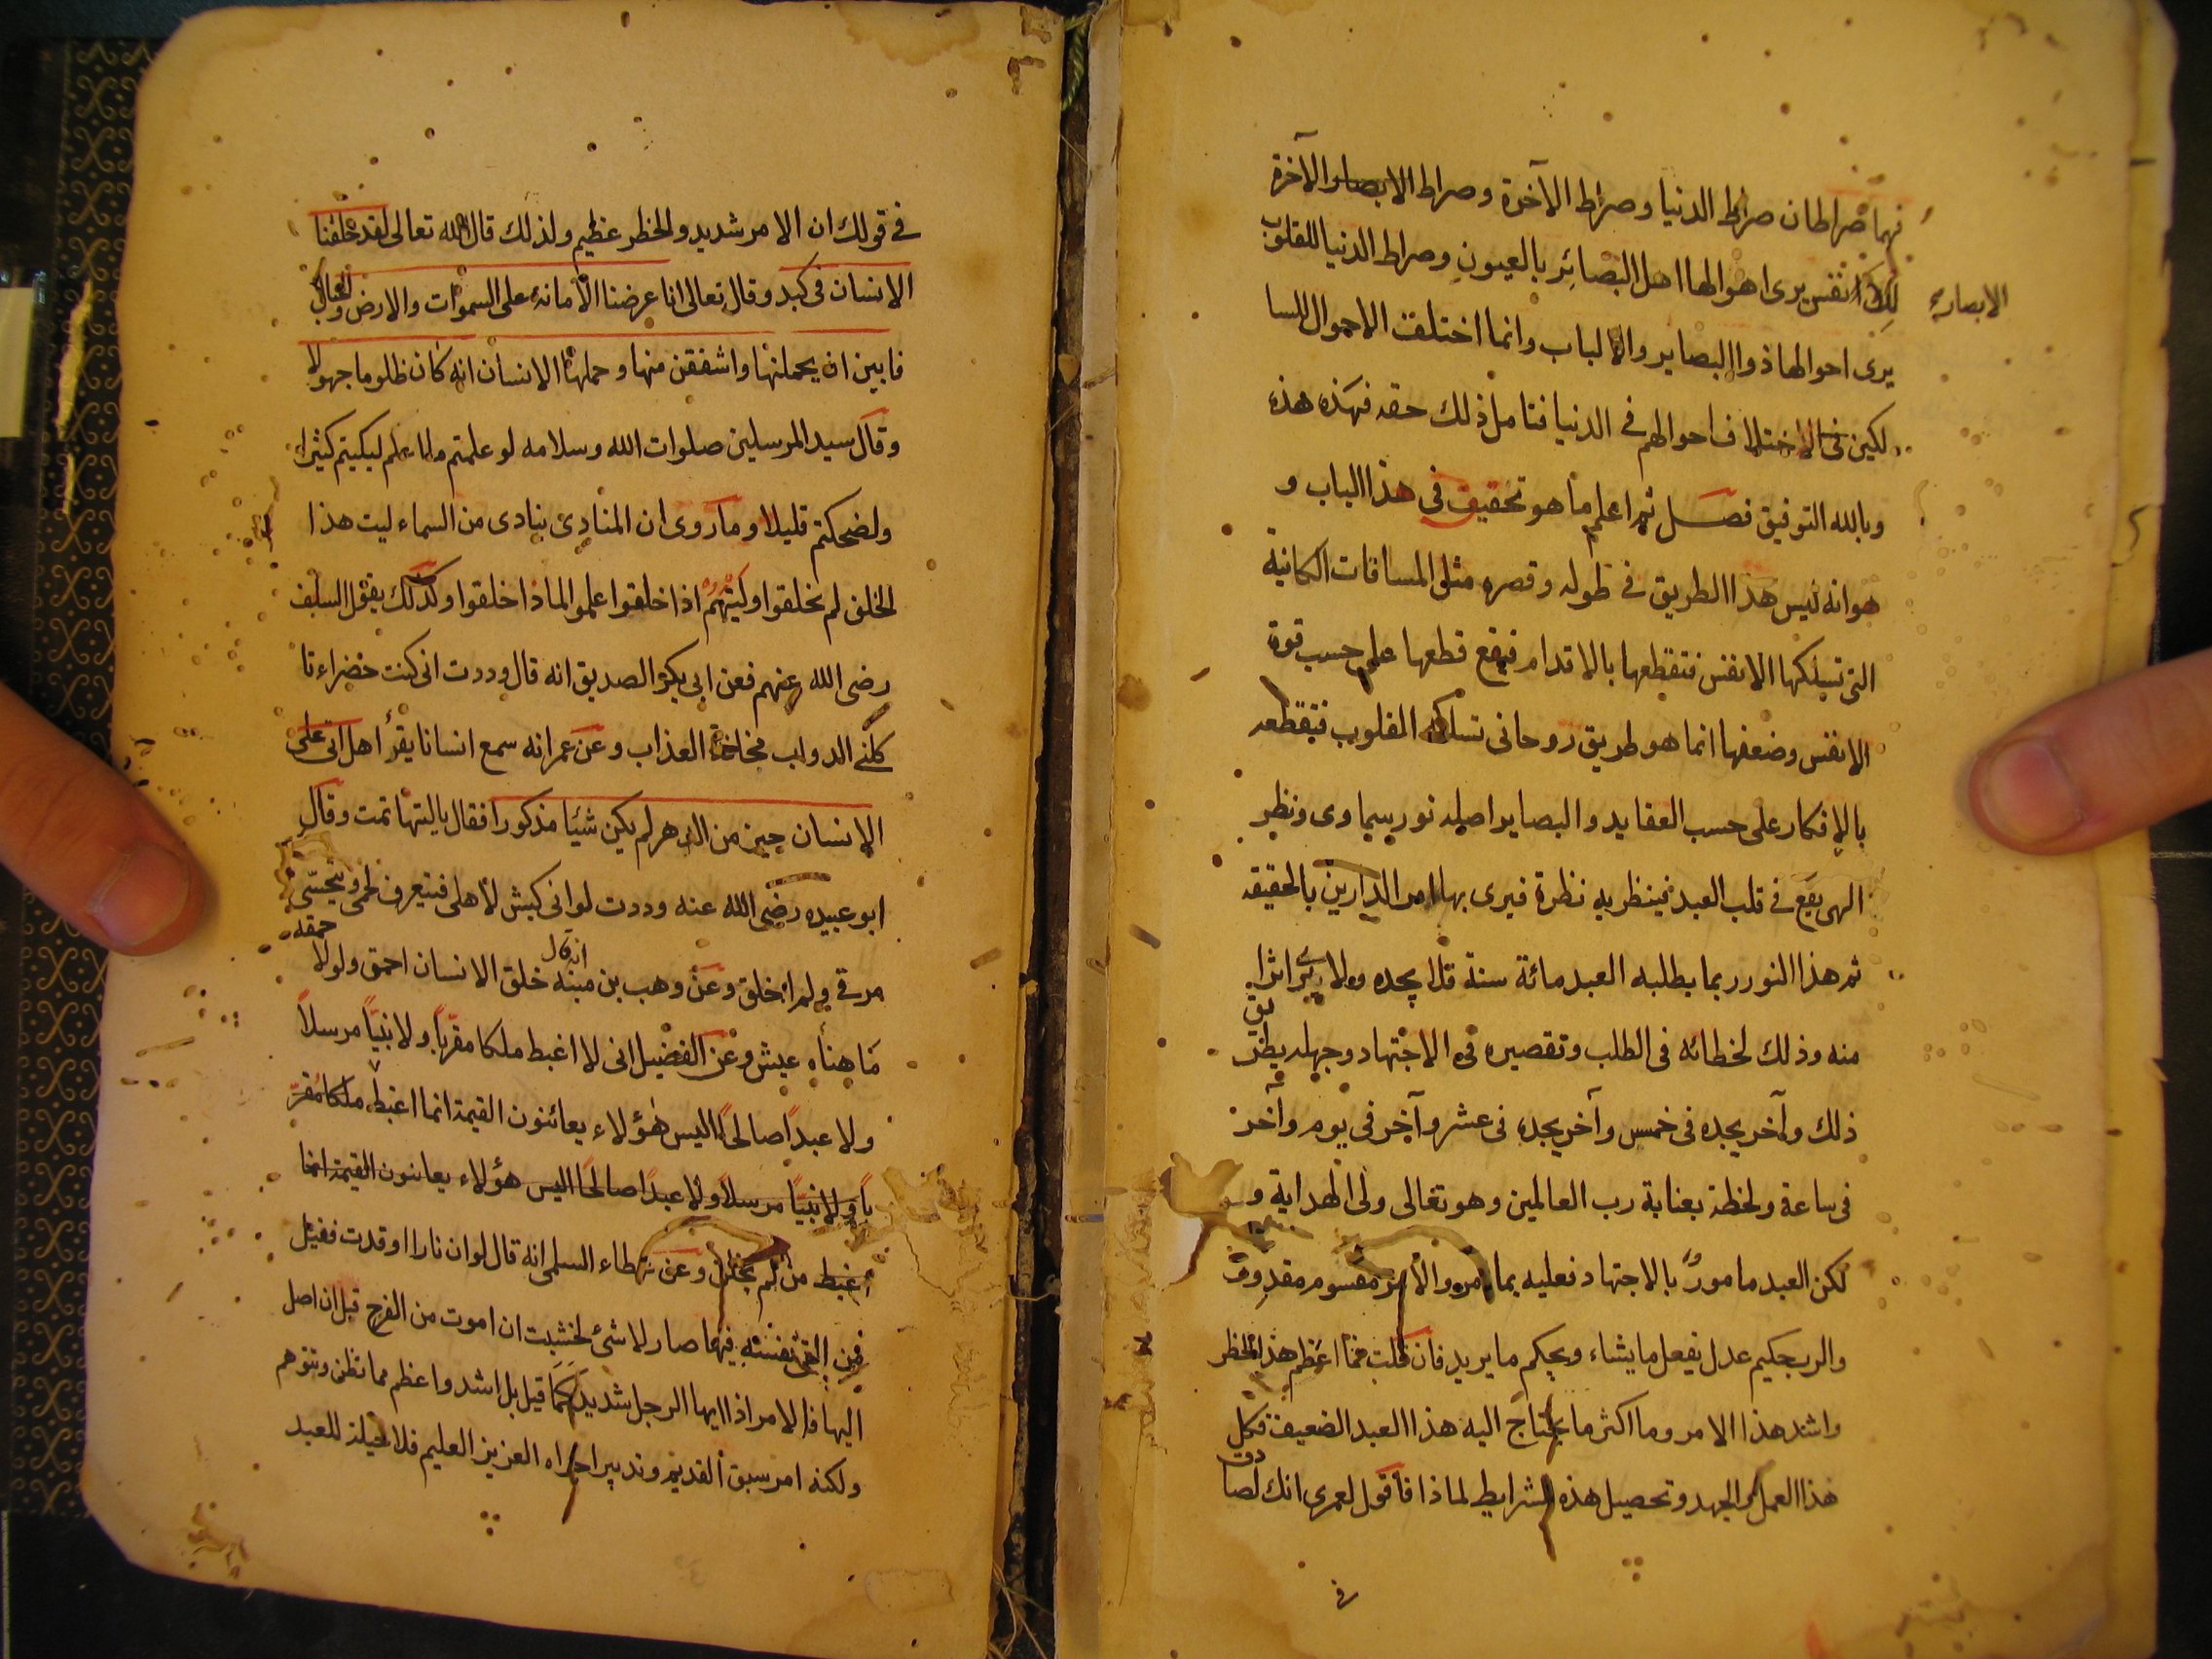 فهما صراطان صراط الدنيا وصراط الآخرة وصراط الابصار الآخرة
الابصار صح
للانفس يرى اهوالها اهل البصائر بالعيون وصراط الدنيا للقلوب
يرى احوالها ذو البصاير والالباب وانما اختلفت الاحوال للسا
لكين فى الاختلاف احوالهم فى الدنيا فتامل ذلك حقه فهذه هذه
وبالله التوفيق فصل ثم اعلم ما هو تحقيق فى هذا الباب و
هو انه ليس هذا الطريق فى طوله وقصره مثل المسافات الكانية
التى تسلكها الانفس فتقطعها بالاقدام فيقع قطعها على حسب قوة
الانفس وضعفها انما هو طريق روحانى تسلكه القلوب فتقطعه
بالافكار على حسب العقايد والبصاير اصله نور سماوى ونظر
الهى يقع فى قلب العبد فينظر به نظرة فيرى بها امر الدارين بالحقيقه
ثم هذا النور ربما يطلبه العبد مائة سنة فلا يجده ولا يرى اثرا
منه وذلك لخطائه فى الطلب وتقصيره فى الاجتهاد وجهله بطريق
ذلك وآخر يجده فى خمس وآخر يجده فى عشر وآخر فى يوم وآخر
فى ساعة ولحظة بعناية رب العالمين وهو تعالى ولى الهداية و
لكن العبد مامورٌ بالاجتهاد فعليه بما امره والامر مقسوم مقدور
والرب حكيم عدل يفعل ما يشاء ويحكم ما يريد فان قلت فما اعظم هذا الخطر
واشد هذا الامر وما اكثر ما يحتاج اليه هذا العبد الضعيف فكل
هذا العمل والجهد وتحصيل هذه الشرايط لماذا فاقول لعمرى انك لصادق
فى
فى قولك ان الامر شديد والخطر عظيم ولذلك قال الله تعالى لقد خلقنا
الانسان فى كبد وقال تعالى انا عرضنا الامانة على السموات والارض والجبال
فابين ان يحملنها واشفقن منها وحملها الانسان انه كان ظلوما جهولا
وقال سيد المرسلين صلوات الله وسلامه لو علمتم ما اعلم لبكيتم كثيرا
ولضحكتم قليلا وما روى ان المنادى ينادى من السماء ليت هذا
الخلق لم يخلقوا وليتهم اذا خلقوا علموا لماذا خلقوا وكذلك يقول السلف
رضى الله عنهم فعن ابى بكر الصديق انه قال وددت انى كنت خضراء تا
كلنى الدواب مخافة العذاب وعن عمر انه سمع انسانا يقرأ هل اتى على
الانسان حين من الدهر لم يكن شيئا مذكورا فقال ياليتها تمت وقال
ابو عبيده رضى الله عنه وددت لو انى كبش لأهلى فيتعرف لحمى ويتحسى
مرقى ولم اخلق وعن وهب بن منبه انه قال خلق الانسان احمق ولولا حمقه
ما هنأه عيش وعن الفضيل انى لا اغبط ملكا مقرّباً ولا نبيّاً مرسلاً
ولا عبداً صالحاً اليس هؤلاء يعائنون القيمة انما اغبط ملكا مُقرّ
باً ولا نبيّاً مرسلاً ولا عبداً صالحًا اليس هؤلاء يعاينون القيمة انما
اغبط من لم يخلق وعن عطاء السلمى انه قال لو ان نارا اوقدت فقيل
من القى نفسه فيها صار لا شئ لخشيت ان اموت من الفرح قبل ان اصل
اليها فالامر اذا ايها الرجل شديد كما قيل بل اشد واعظم مما تظن وتتوهم
ولكنه امر سبق القديم وتدبير اجراه العزيز العليم فلا حيلة للعبد